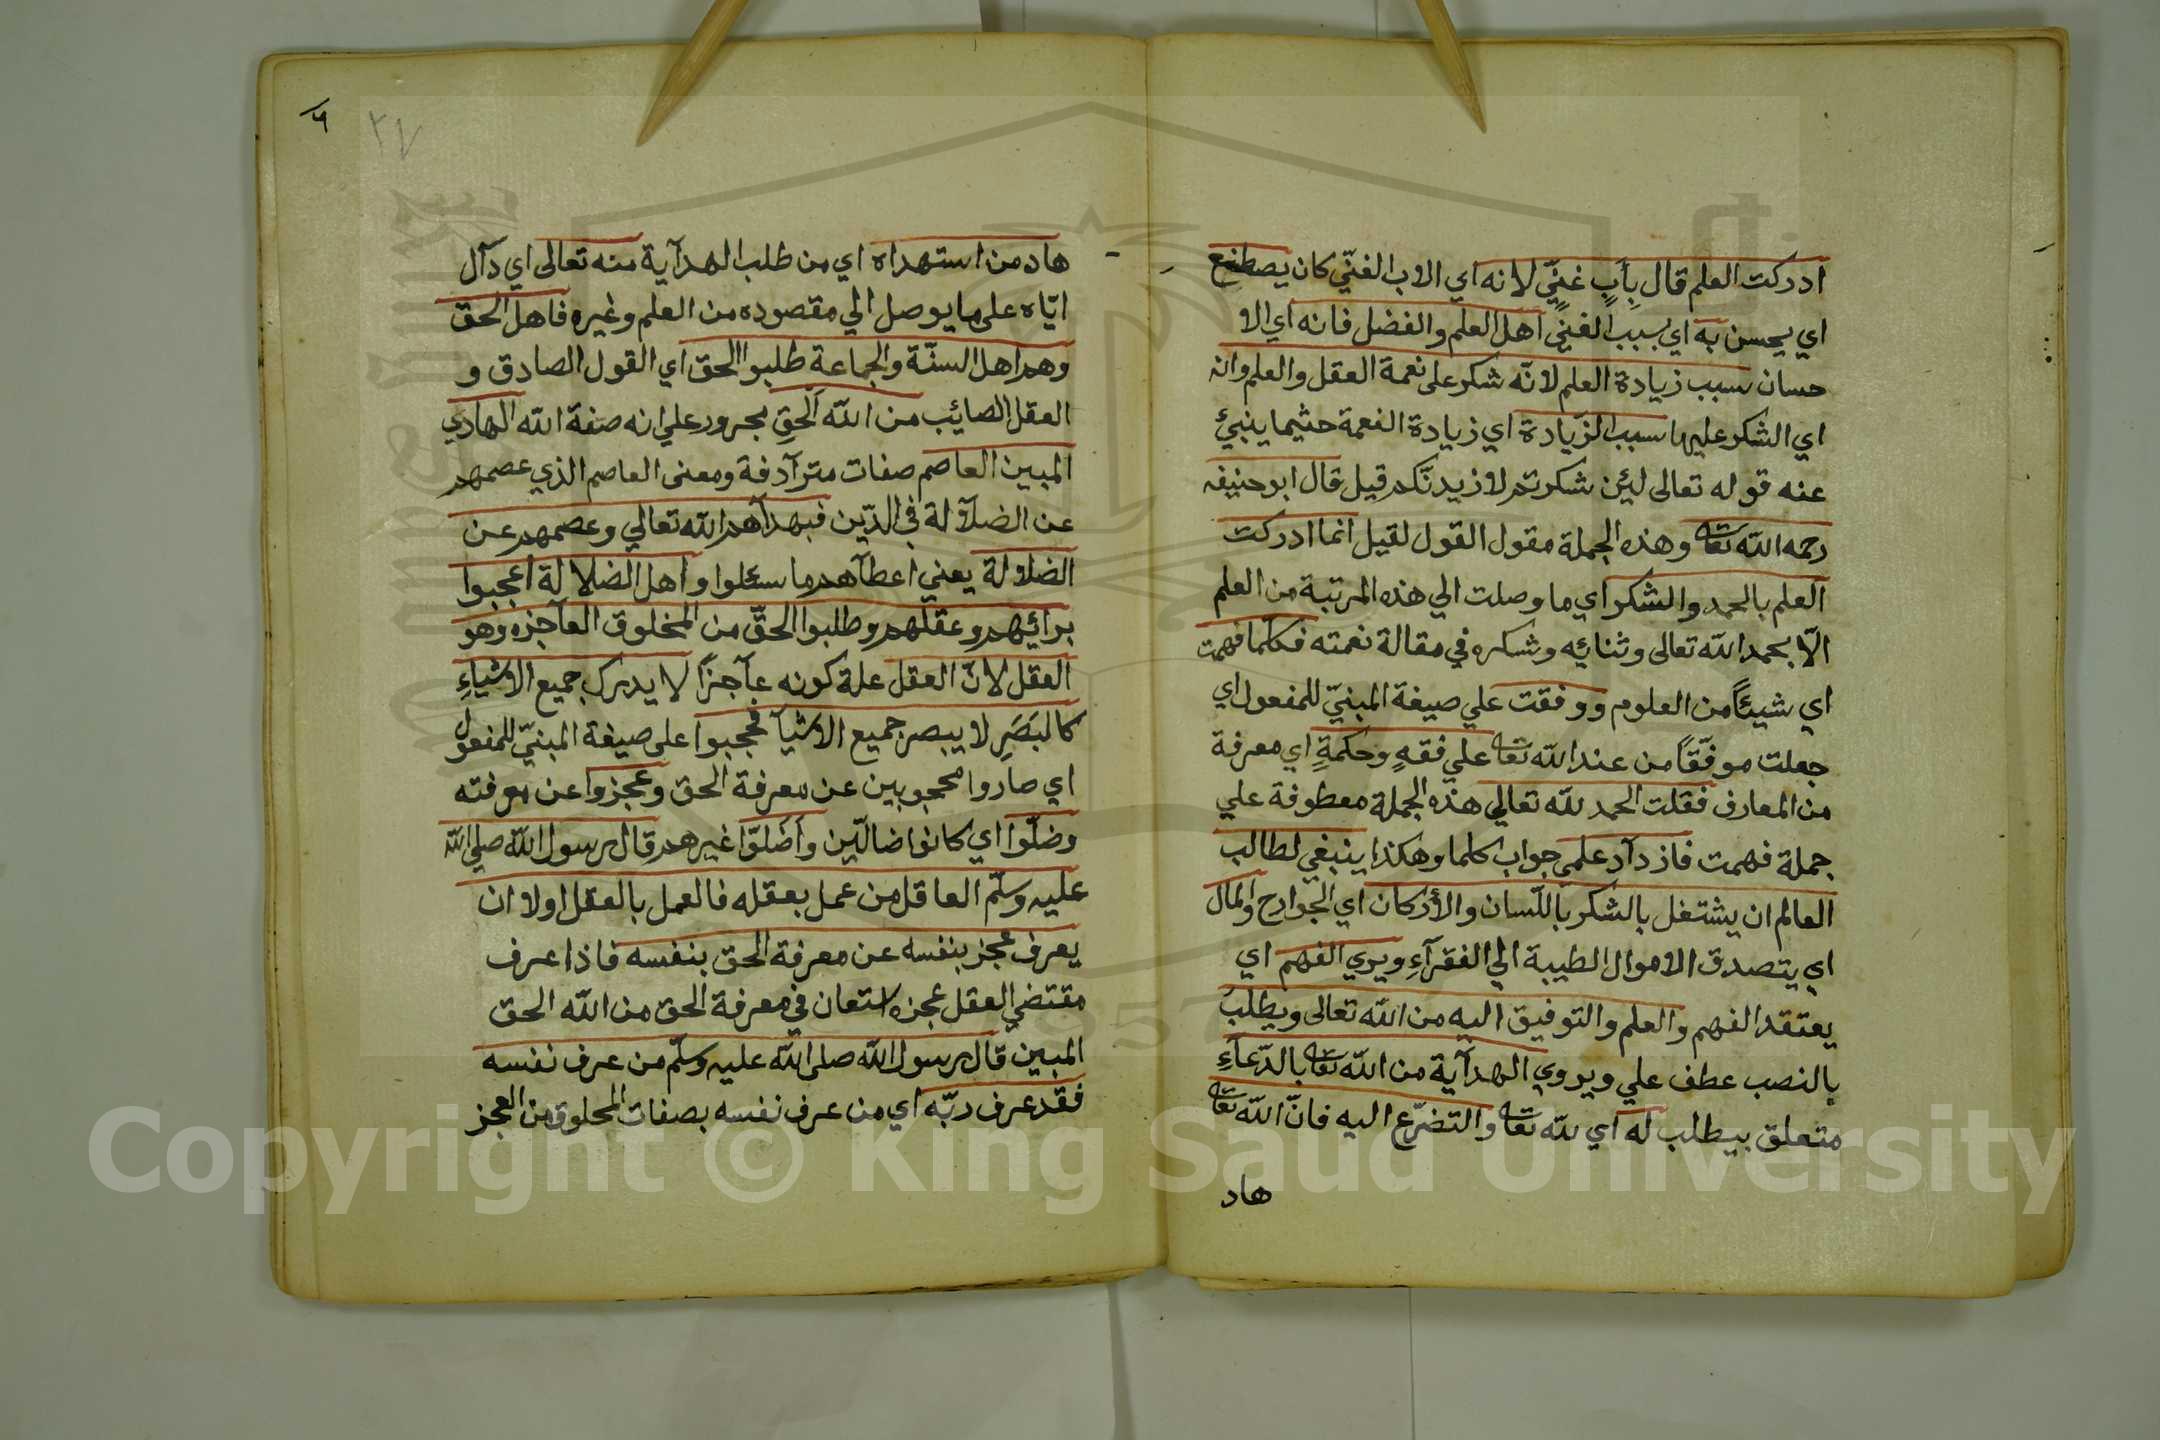 ادركت العلم قال بِأبٍ غنيٍّ لانه اي الاب الغنيّ كان يصطنع
اي يحسن به اي بسبب الغنيّ اهل العلم والفضل فانه اي الا
حسان سبب زيادة العلم لانّه شكر على نعمة العقل والعلم وانه
اي الشكر عليها سبب الزّيادة اي زيادة النعمة حثيما ينبئ
عنه قوله تعالى لئِن شكرتم لازيدنّكم قيل قال ابو حنيفه
رحمه الله تعا وهذه الجملة مقول القول لقيل انما ادركت
العلم بالحمد والشكر اي ما وصلت الي هذه المرتبة من العلم
الّا بحمد الله تعالى وثنائِه وشكره في مقالة نعمته فكلما فهمت
اي شيئًا من العلوم ووفقت علي صيغة المبنيّ للمفعول اي
جعلت موفّقًا من عند الله تعا علي فقهٍ وحكمةٍ اي معرفة
من المعارف فقلت الحمد لله تعالي هذه الجملة معطوفة علي
جملة فهمت فازدآد علمي جواب كلما وهكذا ينبغي لطالب
العالم ان يشتغل بالشكر باللّسان والأركان اي الجوارح والمال
اي يتصدق الاموال الطيبة الي الفقرآءِ ويري الفهم اي
يعتقد الفهم والعلم والتوفيق اليه من الله تعالى ويطلب
بالنصب عطف علي ويروي الهدآية من الله تعا بالدّعآءِ
متعلق بيطلب له اي لله تعا والتضرّع اليه فانّ الله تعا
هاد
٦
٢٧
هاد من استهداه اي من طلب الهدآية منه تعالى اي دآل
ايّاه على ما يوصل الي مقصوده من العلم وغيره فاهل الحق
وهم اهل السنّة والجماعة طلبوا الحق اي القول الصادق و
العقل الصائِب من الله الحقِ مجرور علي انه صفة الله الهادي
المبين العاصم صفات مترآدفة ومعنى العاصم الذي عصمهم
عن الضلآلة في الدّين فهدآهم الله تعالي وعصمهم عن
الضلالة يعني اعطآهم ما سئلوا واهل الضلالة اعجبوا
برائِهم وعقلهم وطلبوا الحقّ من المخلوق العآجزه وهو
العقل لانّ العقل علة كونه عآجزًا لا يدرك جميع الاشيآءِ
كالبَصَرِ لا يبصر جميع الاشيآ فحجبوا على صيغة المبنيّ للمفعول
اي صاروا محجوبين عن معرفة الحق وعجزوا عن معرفته
وضلّوا اي كانوا ضالّين واَضَلوّا غيرهم قال رسول الله صلي الله
عليه وسلّم العاقل من عمل بعقله فالعمل بالعقل اولا ان
يعرف عجز بنفسه عن معرفة الحق بنفسه فاذا عرف
مقتضي العقل عجزه استعان في معرفة الحق من الله الحق
المبين قال رسول الله صلى الله عليه وسلّم من عرف نفسه
فقد عرف ربّه اي من عرف نفسه بصفات المخلوق من العجز
Copyright © King Saud University